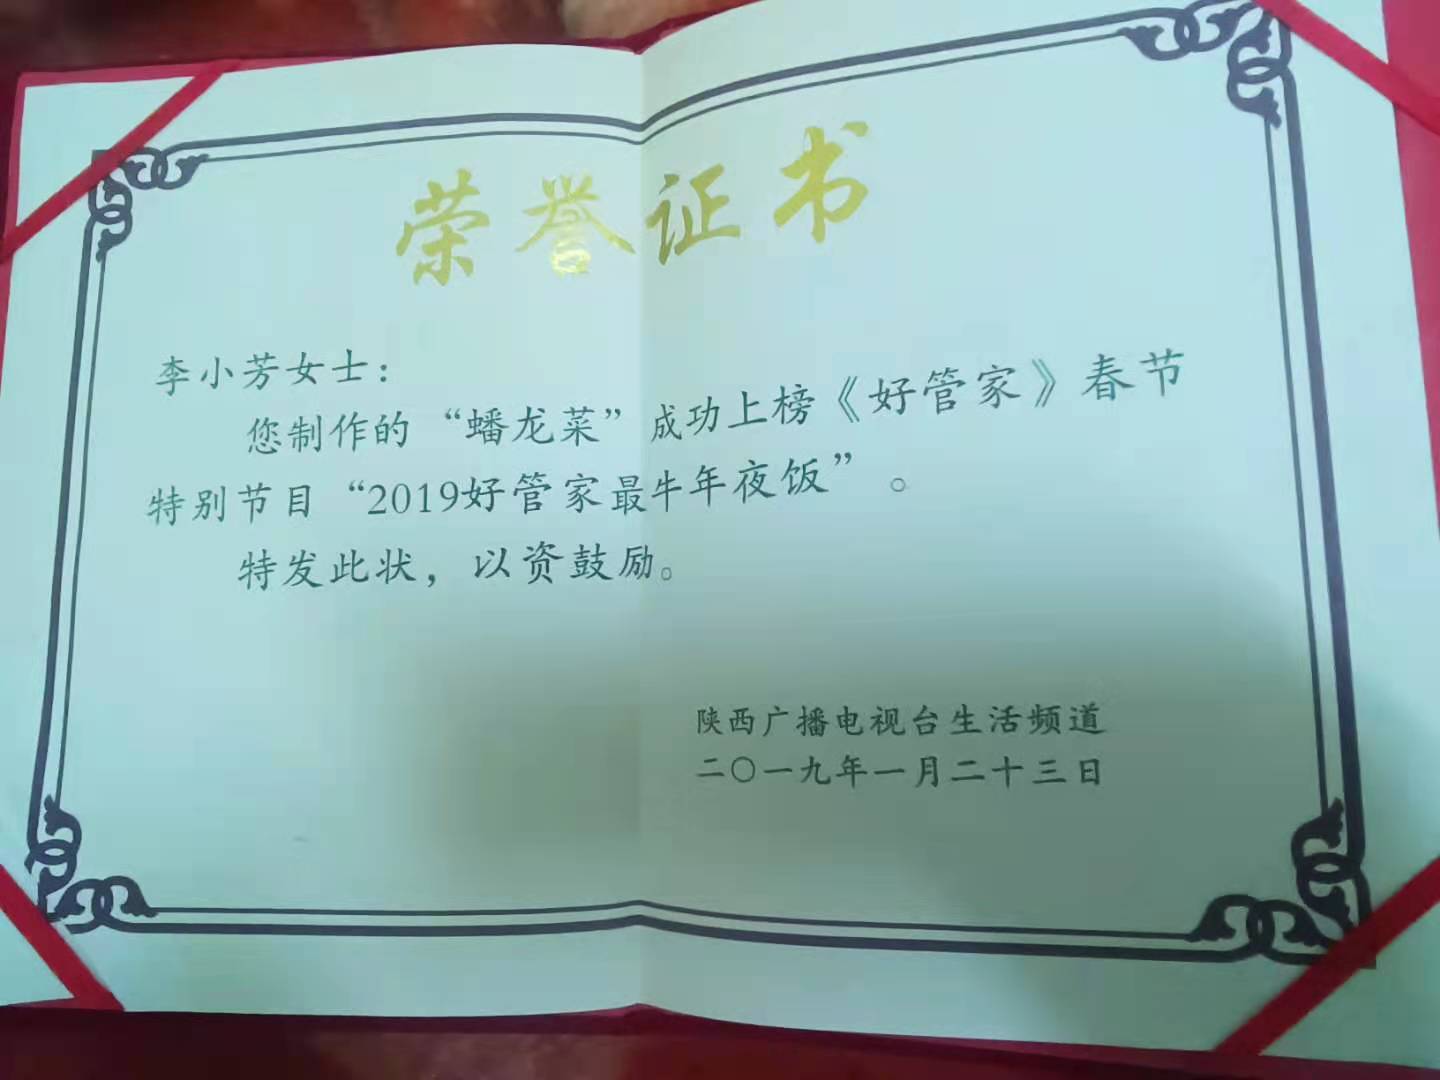 荣誉证书
李小芳女士：
您制作的“蟠龙菜”成功上榜《好管家》春节
特别节目“2019好管家最牛年夜饭”。
特发此状，以资鼓励。
陕西广播电视台生活频道
二〇一九年一月二十三日